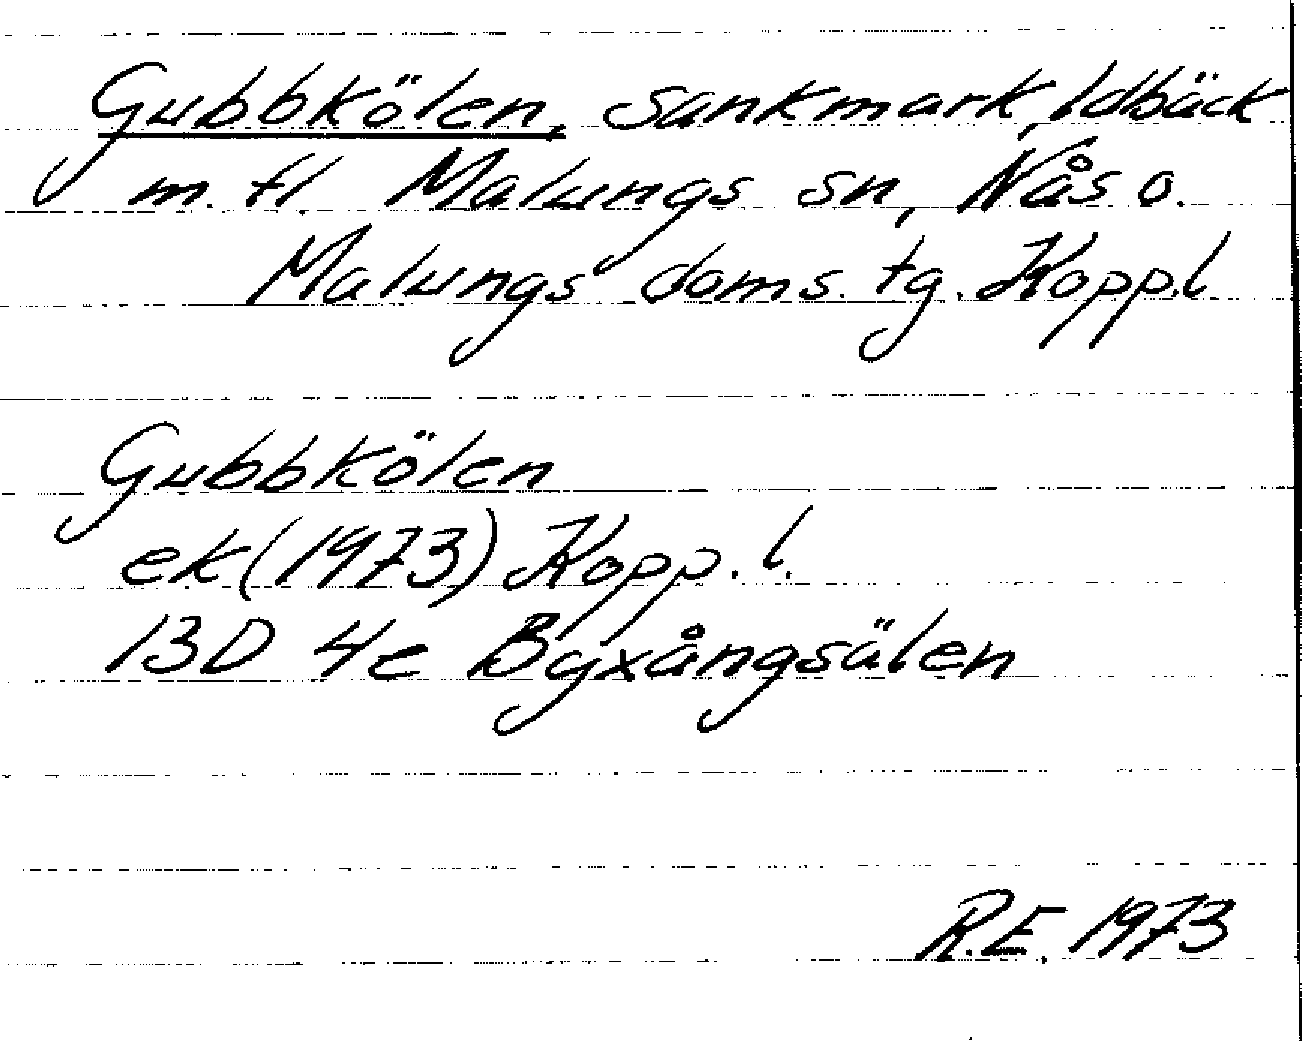 Gubbkölen, sankmark, Idbäck
m. fl. Malungs sn, Nås o.
Malungs doms. tg. Kopp.l.
Gubbkölen
ek (1973) Kopp. l.
13D 4e Byxångsälen
R.E. 1973